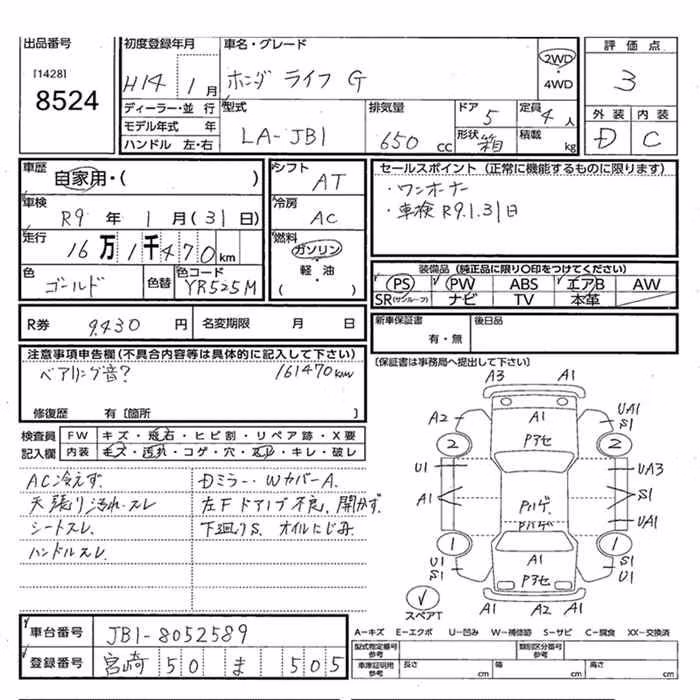 出品番号
[1428]
8524
初度登録年月
H14 1月
車名・グレード
ホンダ ライフ G
2WD
・
4WD
評価点
3
外装 内装
D C
ディーラー・並行
モデル年式 年
ハンドル 左・右
型式
LA-JB1
排気量
650 cc
ドア 5
形状 箱
定員 4人
積載 kg
車歴
自家用・( )
車検
R9年1月(31日)
走行
16万1千470km
色
ゴールド
色替
色コード
YR525M
シフト
AT
冷房
AC
燃料
ガソリン
・
軽・油
( )
セールスポイント(正常に機能するものに限ります)
・ワンオーナー
・車検R9.1.31日
装備品(純正品に限り○印をつけてください)
PS PW ABS エアB AW
SR(サンルーフ) ナビ TV 本革
R券 9,430円 名変期限 月 日
新車保証書
有・無
後日品
注意事項申告欄(不具合内容等は具体的に記入して下さい)
ベアリング音?
161470km
修復歴 有〔箇所 〕
〔保証書は事務局へ提出して下さい〕
検査員 FW キズ・飛石・ヒビ割・リペア跡・X要
記入欄 内装 キズ・汚れ・コゲ・穴・スレ・キレ・破レ
AC冷えず.
天張り汚れ・スレ
シートスレ.
ハンドルスレ.
Dミラー・WカバーA.
左Fドアノブ不良、開かず.
下廻りS. オイルにじみ.
A3 A1
A2 A1 UA1
Pアセ S1
2 2
U1 UA3
A1 Pハゲ S1
Pハゲ UA1
1 1
U1 A1 S1
S1 Pアセ U1
スペアT
A1 A2 A1
車台番号 JB1-8052589
登録番号 宮崎 50 ま 505
A-キズ E-エクボ U-凹み W-補修跡 S-サビ C-腐食 XX-交換済
型式指定番号 参考
類別区分番号 参考
車庫証明用 参考
長さ cm 幅 cm 高さ cm